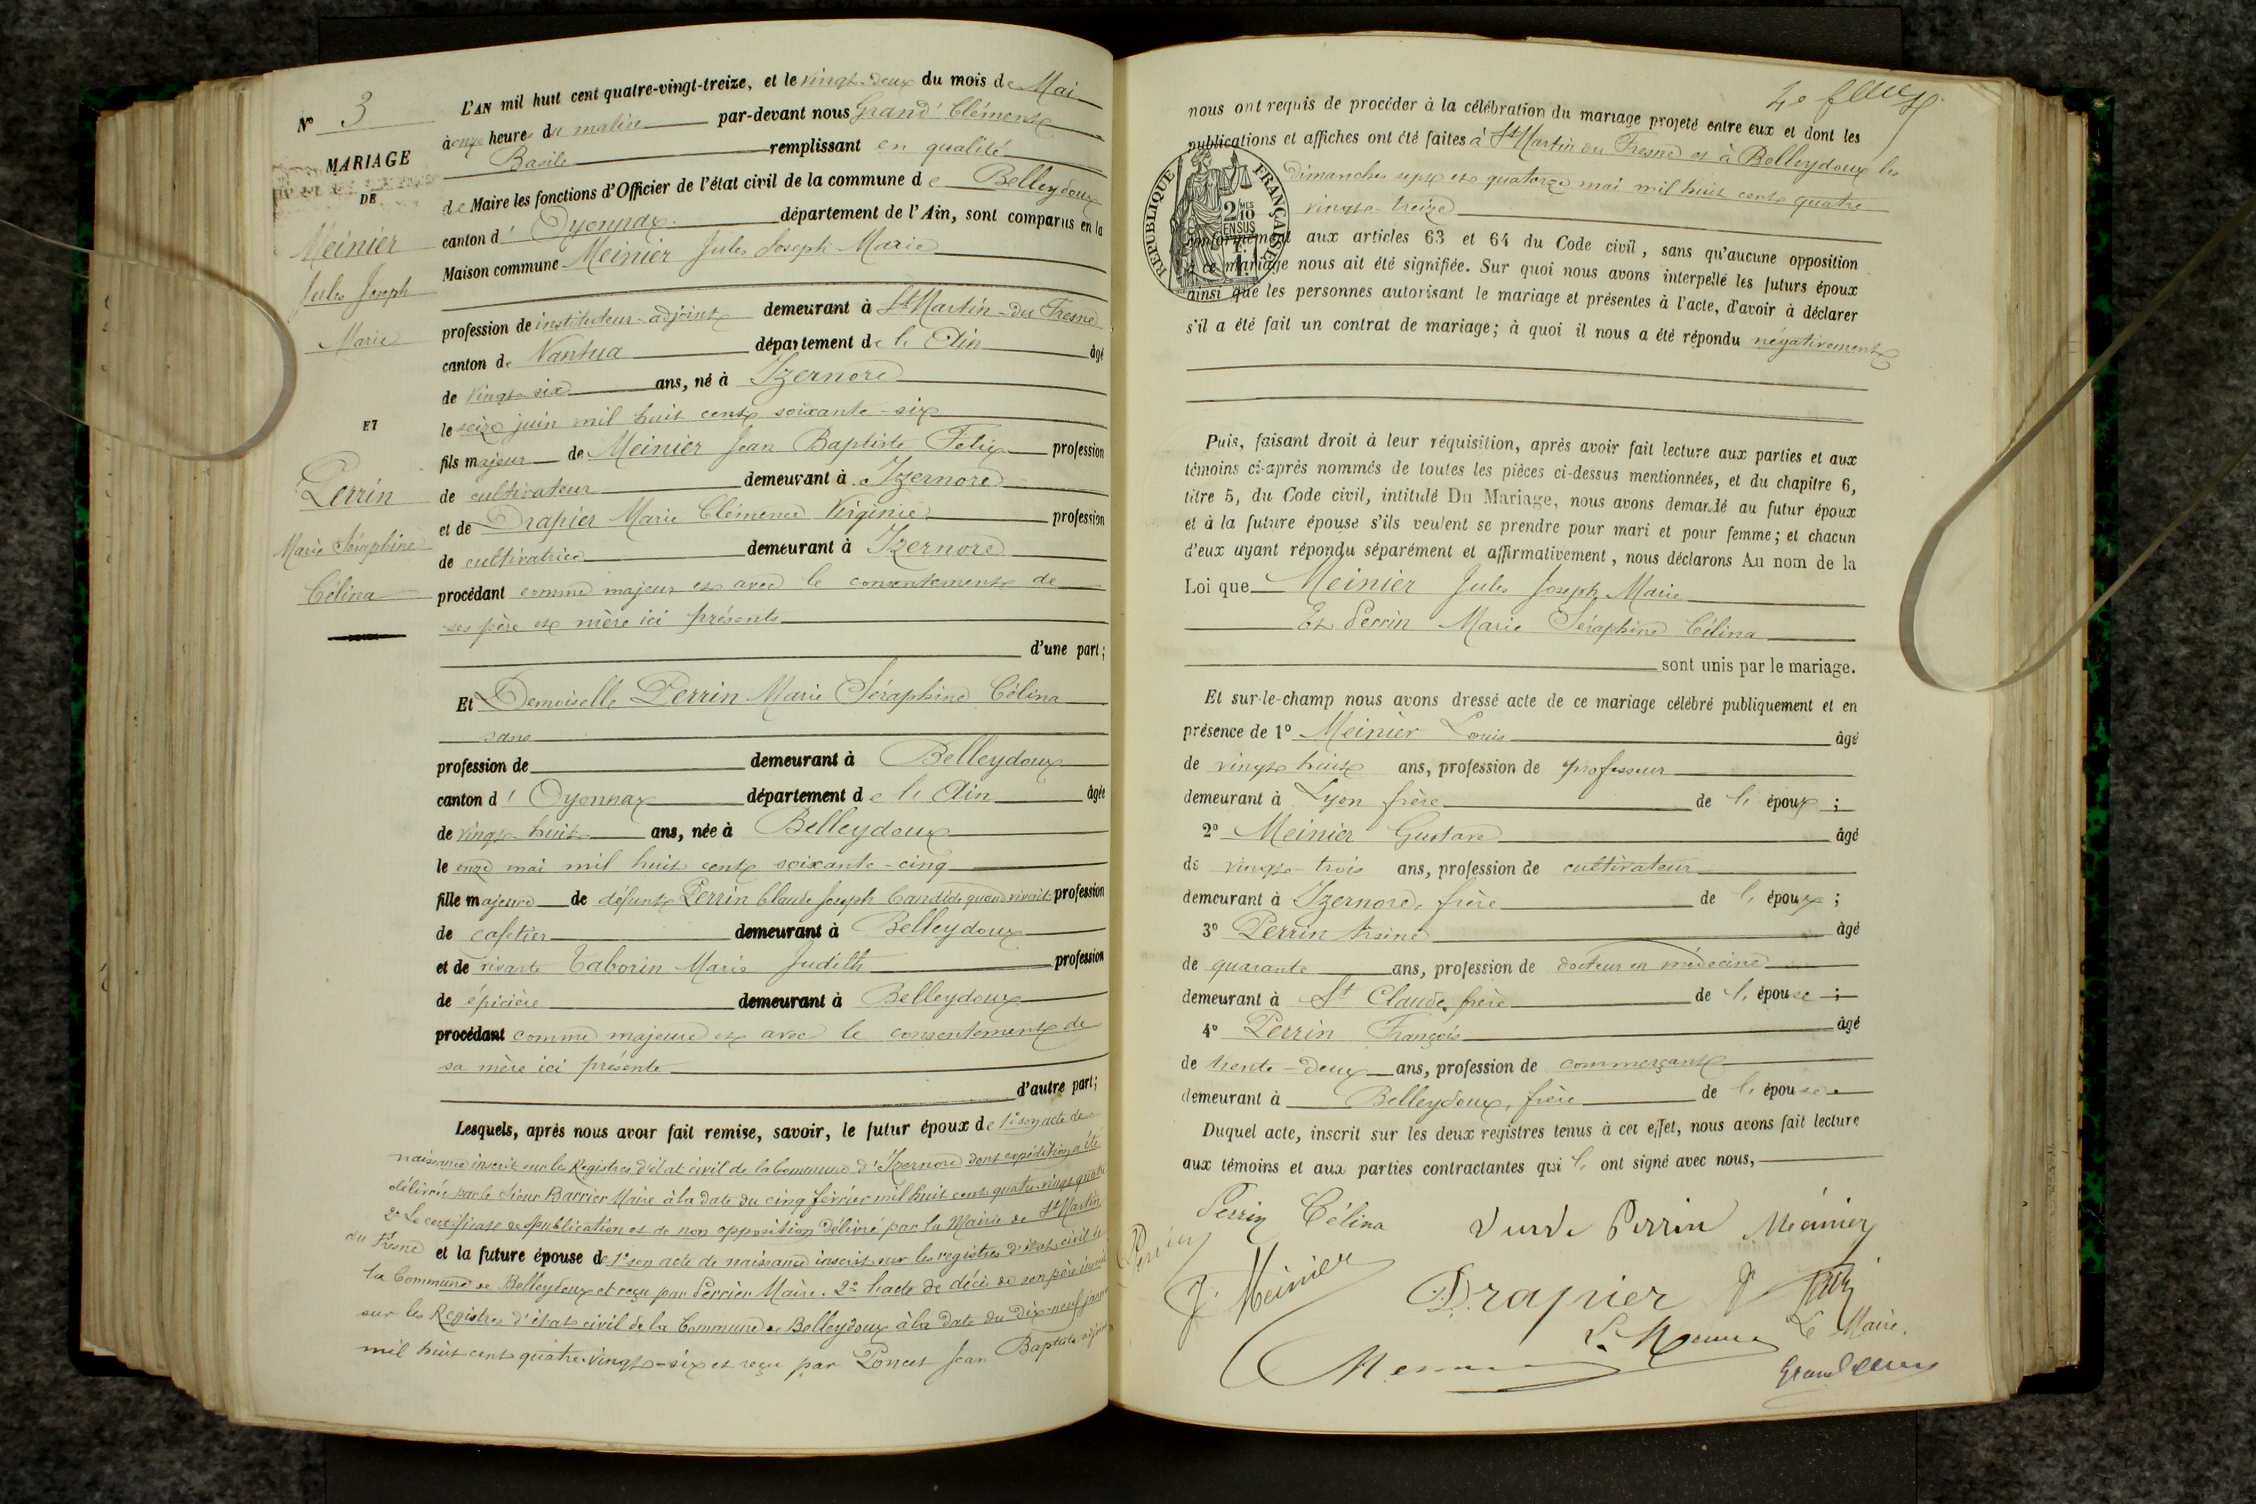 N° 3
MARIAGE
DE
Meinier
Jules Joseph
Marie
ET
Perrin
Marie Séraphine
Célina
L'AN mil huit cent quatre-vingt-treize, et le vingt-deux du mois de Mai
à onze heures du matin par-devant nous Grand Clément
Basile remplissant en qualité
de Maire les fonctions d'Officier de l'état civil de la commune de Belleydoux
canton d' Oyonnax département de l'Ain, sont comparus en la
Maison commune Meinier Jules Joseph Marie
profession de instituteur-adjoint demeurant à St Martin-du Fresne
canton de Nantua département de l'Ain âgé
de vingt six ans, né à Izernore
le seize juin mil huit cent soixante-six
fils majeur de Meinier Jean Baptiste Félix profession
de cultivateur demeurant à Izernore
et de Drapier Marie Clémence Virginie profession
de cultivatrice demeurant à Izernore
procédant comme majeur et avec le consentement de
ses père et mère ici présents
d'une part;
Et Demoiselle Perrin Marie Séraphine Célina
sans
profession de demeurant à Belleydoux
canton d' Oyonnax département de l'Ain âgée
de vingt huit ans, née à Belleydoux
le onze mai mil huit cent soixante-cinq
fille majeure de défunt Perrin Claude Joseph Candide quand vivait profession
de cafetier demeurant à Belleydoux
et de vivante Taborin Marie Judith profession
de épicière demeurant à Belleydoux
procédant comme majeure et avec le consentement de
sa mère ici présente
d'autre part;
Lesquels, après nous avoir fait remise, savoir, le futur époux de 1° son acte de
naissance inscrit sur les Registres d'état civil de la Commune d'Izernore dont expédition a été
délivrée par le Sieur Barrier Maire à la date du cinq février mil huit cent quatre-vingt quatre
2° Le certificat de publication et de non opposition délivré par la Mairie de St Martin
du Fresne et la future épouse de 1° son acte de naissance inscrit sur les registres d'état civil de
la Commune de Belleydoux et reçu par Perrier Maire. 2° L'acte de décès de son père inscrit
sur les Registres d'état civil de la Commune de Belleydoux à la date du dix-neuf janvier
mil huit cent quatre-vingt-six et reçu par Poncet Jean Baptiste adjoint
nous ont requis de procéder à la célébration du mariage projeté entre eux et dont les
publications et affiches ont été faites à St Martin du Fresne et à Belleydoux les
dimanches sept et quatorze mai mil huit cent quatre
vingt-treize
RÉPUBLIQUE FRANÇAISE
2 MES
10
EN SUS
conformément aux articles 63 et 64 du Code civil, sans qu'aucune opposition
à ce mariage nous ait été signifiée. Sur quoi nous avons interpellé les futurs époux
ainsi que les personnes autorisant le mariage et présentes à l'acte, d'avoir à déclarer
s'il a été fait un contrat de mariage; à quoi il nous a été répondu négativement
Puis, faisant droit à leur réquisition, après avoir fait lecture aux parties et aux
témoins ci-après nommés de toutes les pièces ci-dessus mentionnées, et du chapitre 6,
titre 5, du Code civil, intitulé Du Mariage, nous avons demandé au futur époux
et à la future épouse s'ils veulent se prendre pour mari et pour femme; et chacun
d'eux ayant répondu séparément et affirmativement, nous déclarons Au nom de la
Loi que Meinier Jules Joseph Marie
Et Perrin Marie Séraphine Célina
sont unis par le mariage.
Et sur-le-champ nous avons dressé acte de ce mariage célébré publiquement et en
présence de 1° Meinier Louis âgé
de vingt huit ans, profession de professeur
demeurant à Lyon frère de l'époux ;
2° Meinier Gustave âgé
de vingt-trois ans, profession de cultivateur
demeurant à Izernore, frère de l'époux ;
3° Perrin Arsène âgé
de quarante ans, profession de docteur en médecine
demeurant à St Claude, frère de l'épouse ;
4° Perrin François âgé
de trente-deux ans, profession de commerçant
demeurant à Belleydoux, frère de l'épouse
Duquel acte, inscrit sur les deux registres tenus à cet effet, nous avons fait lecture
aux témoins et aux parties contractantes qui ont signé avec nous,
Perrin Célina Veuve Perrin Meinier
Perrin J. Meinier Drapier
Le Maire.